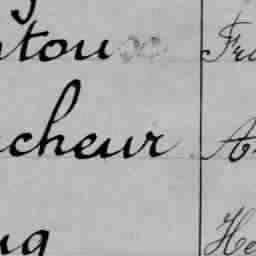 ntou Fra
cheur A
ug He